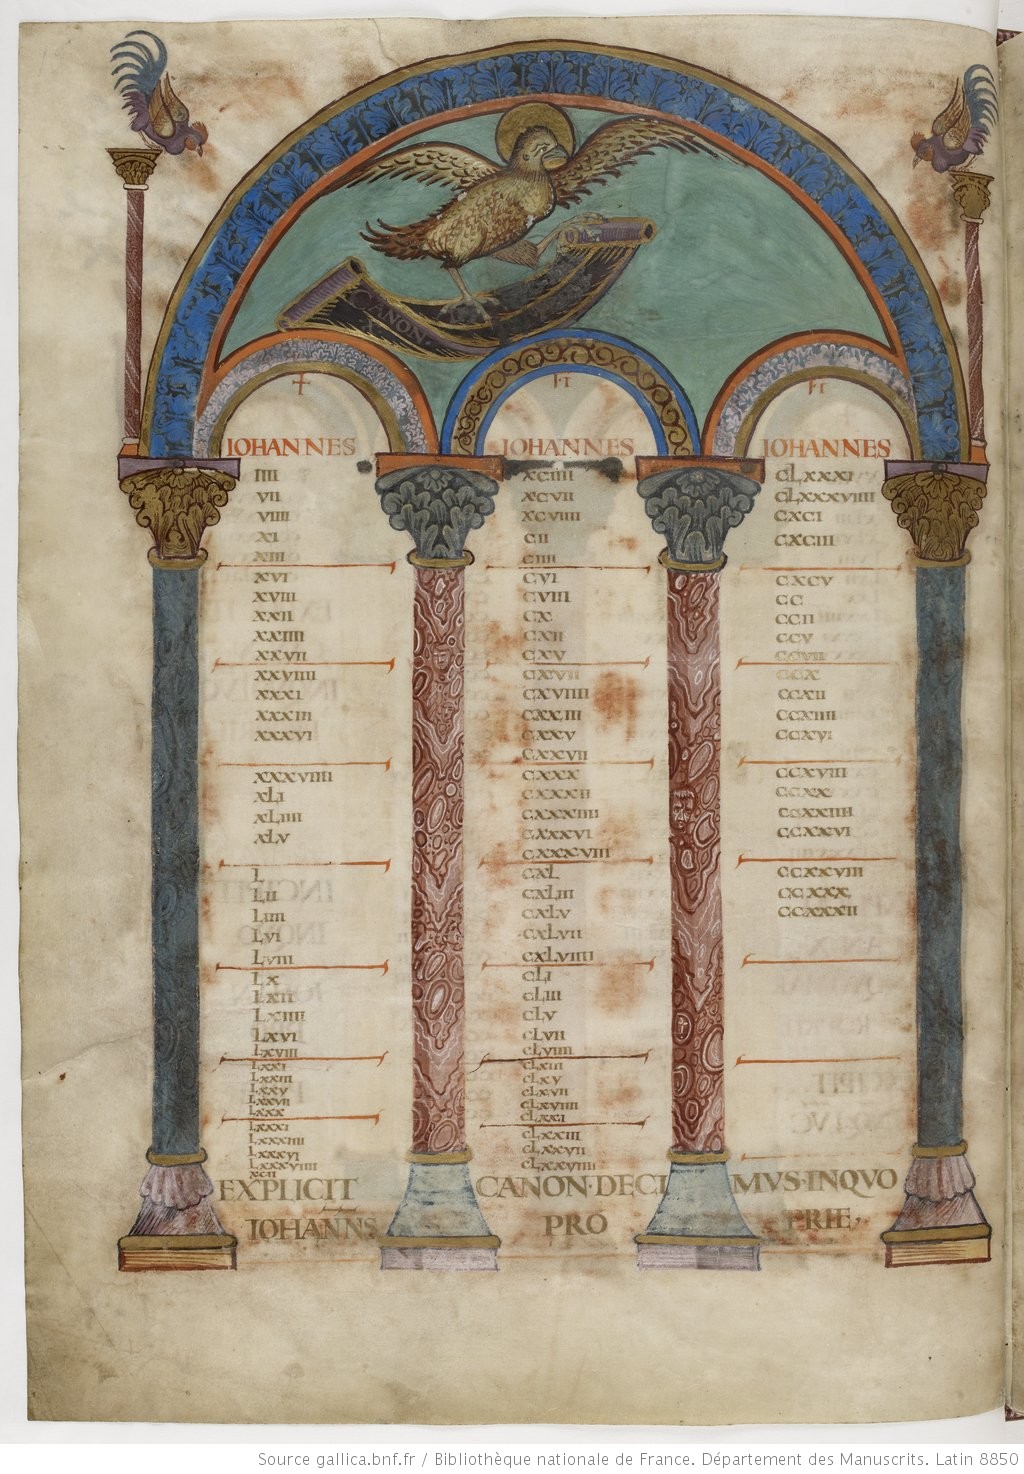 CANON
X
IOHANNES
IIII
VII
VIIII
XI
XIII
XVI
XVIII
XXII
XXIIII
XXVII
XXVIIII
XXXI
XXXIII
XXXVI
XXXVIIII
XLI
XLIII
XLV
L
LII
LIIII
LVI
LVIII
LX
LXII
LXIIII
LXVI
LXVIII
LXXI
LXXIII
LXXV
LXXVII
LXXX
LXXXI
LXXXIIII
LXXXVI
LXXXVIIII
XCII
IOHANNES
XCIIII
XCVII
XCVIIII
CII
CIIII
CVI
CVIII
CX
CXII
CXV
CXVII
CXVIIII
CXXIII
CXXV
CXXVII
CXXX
CXXXII
CXXXIIII
CXXXVI
CXXXVIII
CXL
CXLIII
CXLV
CXLVII
CXLVIIII
CLI
CLIII
CLV
CLVII
CLVIIII
CLXIII
CLXV
CLXVII
CLXVIIII
CLXXI
CLXXIII
CLXXVII
CLXXVIIII
IOHANNES
CLXXXI
CLXXXVIIII
CXCI
CXCIII
CXCV
CC
CCII
CCV
CCVII
CCX
CCXII
CCXIIII
CCXVI
CCXVIII
CCXX
CCXXIIII
CCXXVI
CCXXVIII
CCXXX
CCXXXII
EXPLICIT CANON·DECI MVS·INQVO
IOHANNS PRO PRIE,
Source gallica.bnf.fr / Bibliothèque nationale de France. Département des Manuscrits. Latin 8850